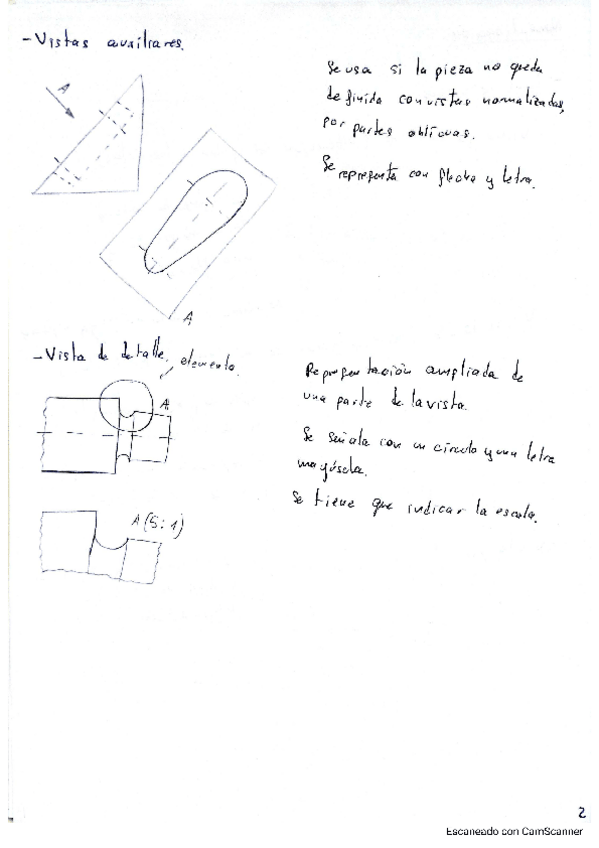 - Vistas auxiliares.
Se usa si la pieza no queda
definida con vistas normalizadas,
por partes oblicuas.
Se representa con flecha y letra.
A
A
- Vista de detalle, elemento.
Representación ampliada de
una parte de la vista.
Se señala con un círculo y una letra
mayúscula.
Se tiene que indicar la escala.
A
A (5:1)
2
Escaneado con CamScanner